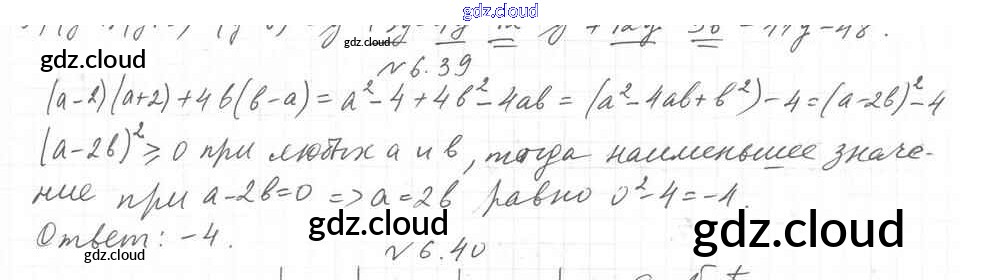 gdz.cloud
gdz.cloud
gdz.cloud
№6.39
(a-2)(a+2)+4b(b-a)=a²-4+4b²-4ab=(a²-4ab+b²)-4=(a-2b)²-4
(a-2b)²≥0 при любых a и b, тогда наименьшее значе-
ние при a-2b=0 => a=2b равно 0²-4=-4.
gdz.cloud
gdz.cloud
Ответ: -4.
gdz.cloud
№6.40